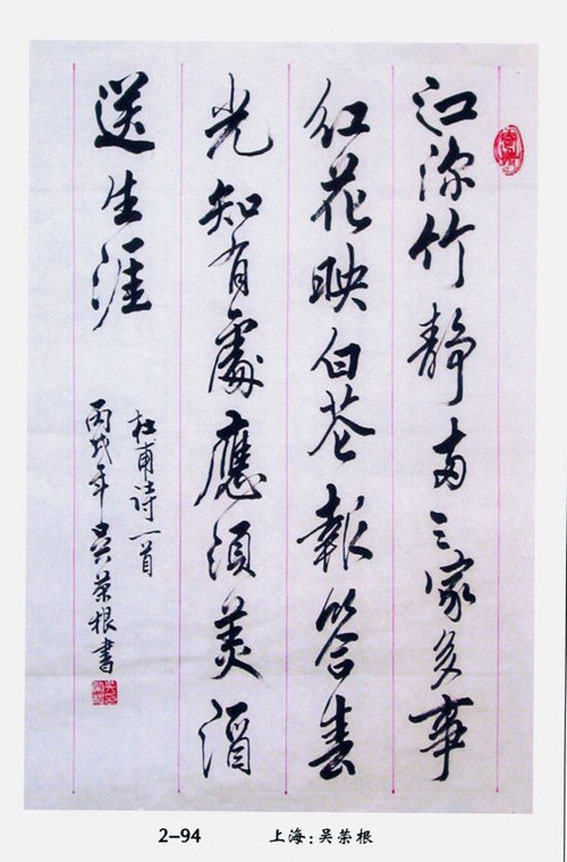 江深竹静两三家多事
红花映白花報答春
光知有處應須美酒
送生涯
杜甫诗一首
丙戌年吴荣根書
2-94 上海:吴荣根